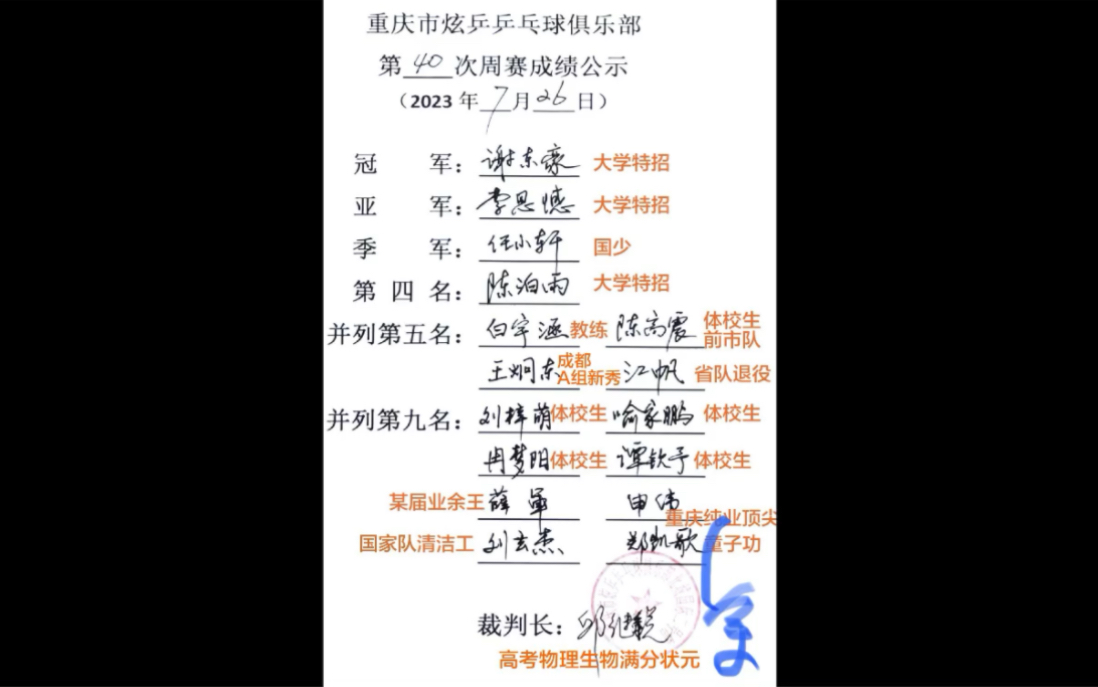 重庆市炫乒乒乓球俱乐部
第40次周赛成绩公示
（2023年7月26日）
冠军：谢东豪 大学特招
亚军：李思憾 大学特招
季军：任小轩 国少
第四名：陈泊雨 大学特招
并列第五名：白宇涵 教练 陈高震 体校生 前市队
王炯东 成都A组新秀 江帆 省队退役
并列第九名：刘梓萌 体校生 喻家鹏 体校生
冉梦阳 体校生 谭钦予 体校生
某届业余王 薛军 申伟 重庆纯业顶尖
国家队清洁工 刘玄杰 郑凯歌 童子功
裁判长：邱继锐
高考物理生物满分状元